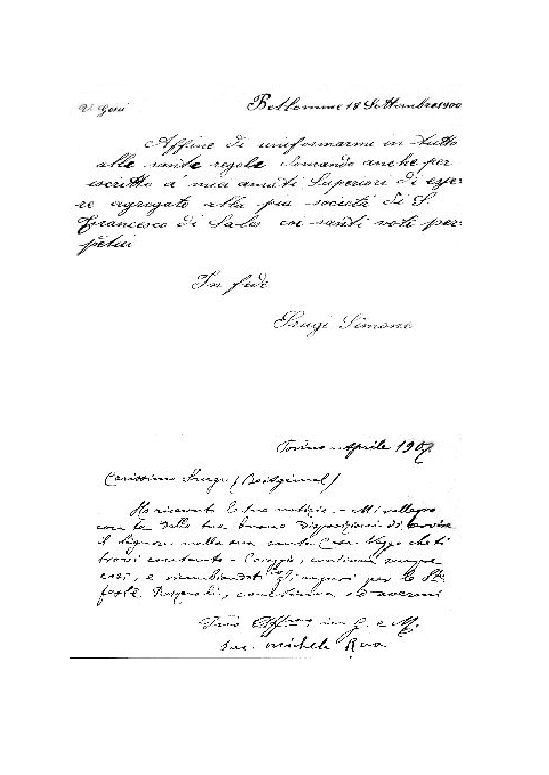 V. Gesù
Betlemme 18 Settembre 1900
Affine di uniformarmi in tutto
alle sante regole domando anche per
iscritto a' miei amati Superiori di esse-
re agregato alla pia società di S.
Francesco di Sales coi santi voti per-
petui
In fede
Luigi Simone
Torino Aprile 190
Carissimo Luigi (Beitgemal)
Ho ricevuto le tue notizie. - Mi rallegro
con te delle tue buone disposizioni di servire
il Signore nella sua santa Casa. Veggo che ti
trovi contento - Coraggio, continua sempre
così, e ricambiandoti gli auguri per le Ste
feste Pasquali, continua
Tuo Aff.mo in G. e M.
Sac. Michele Rua